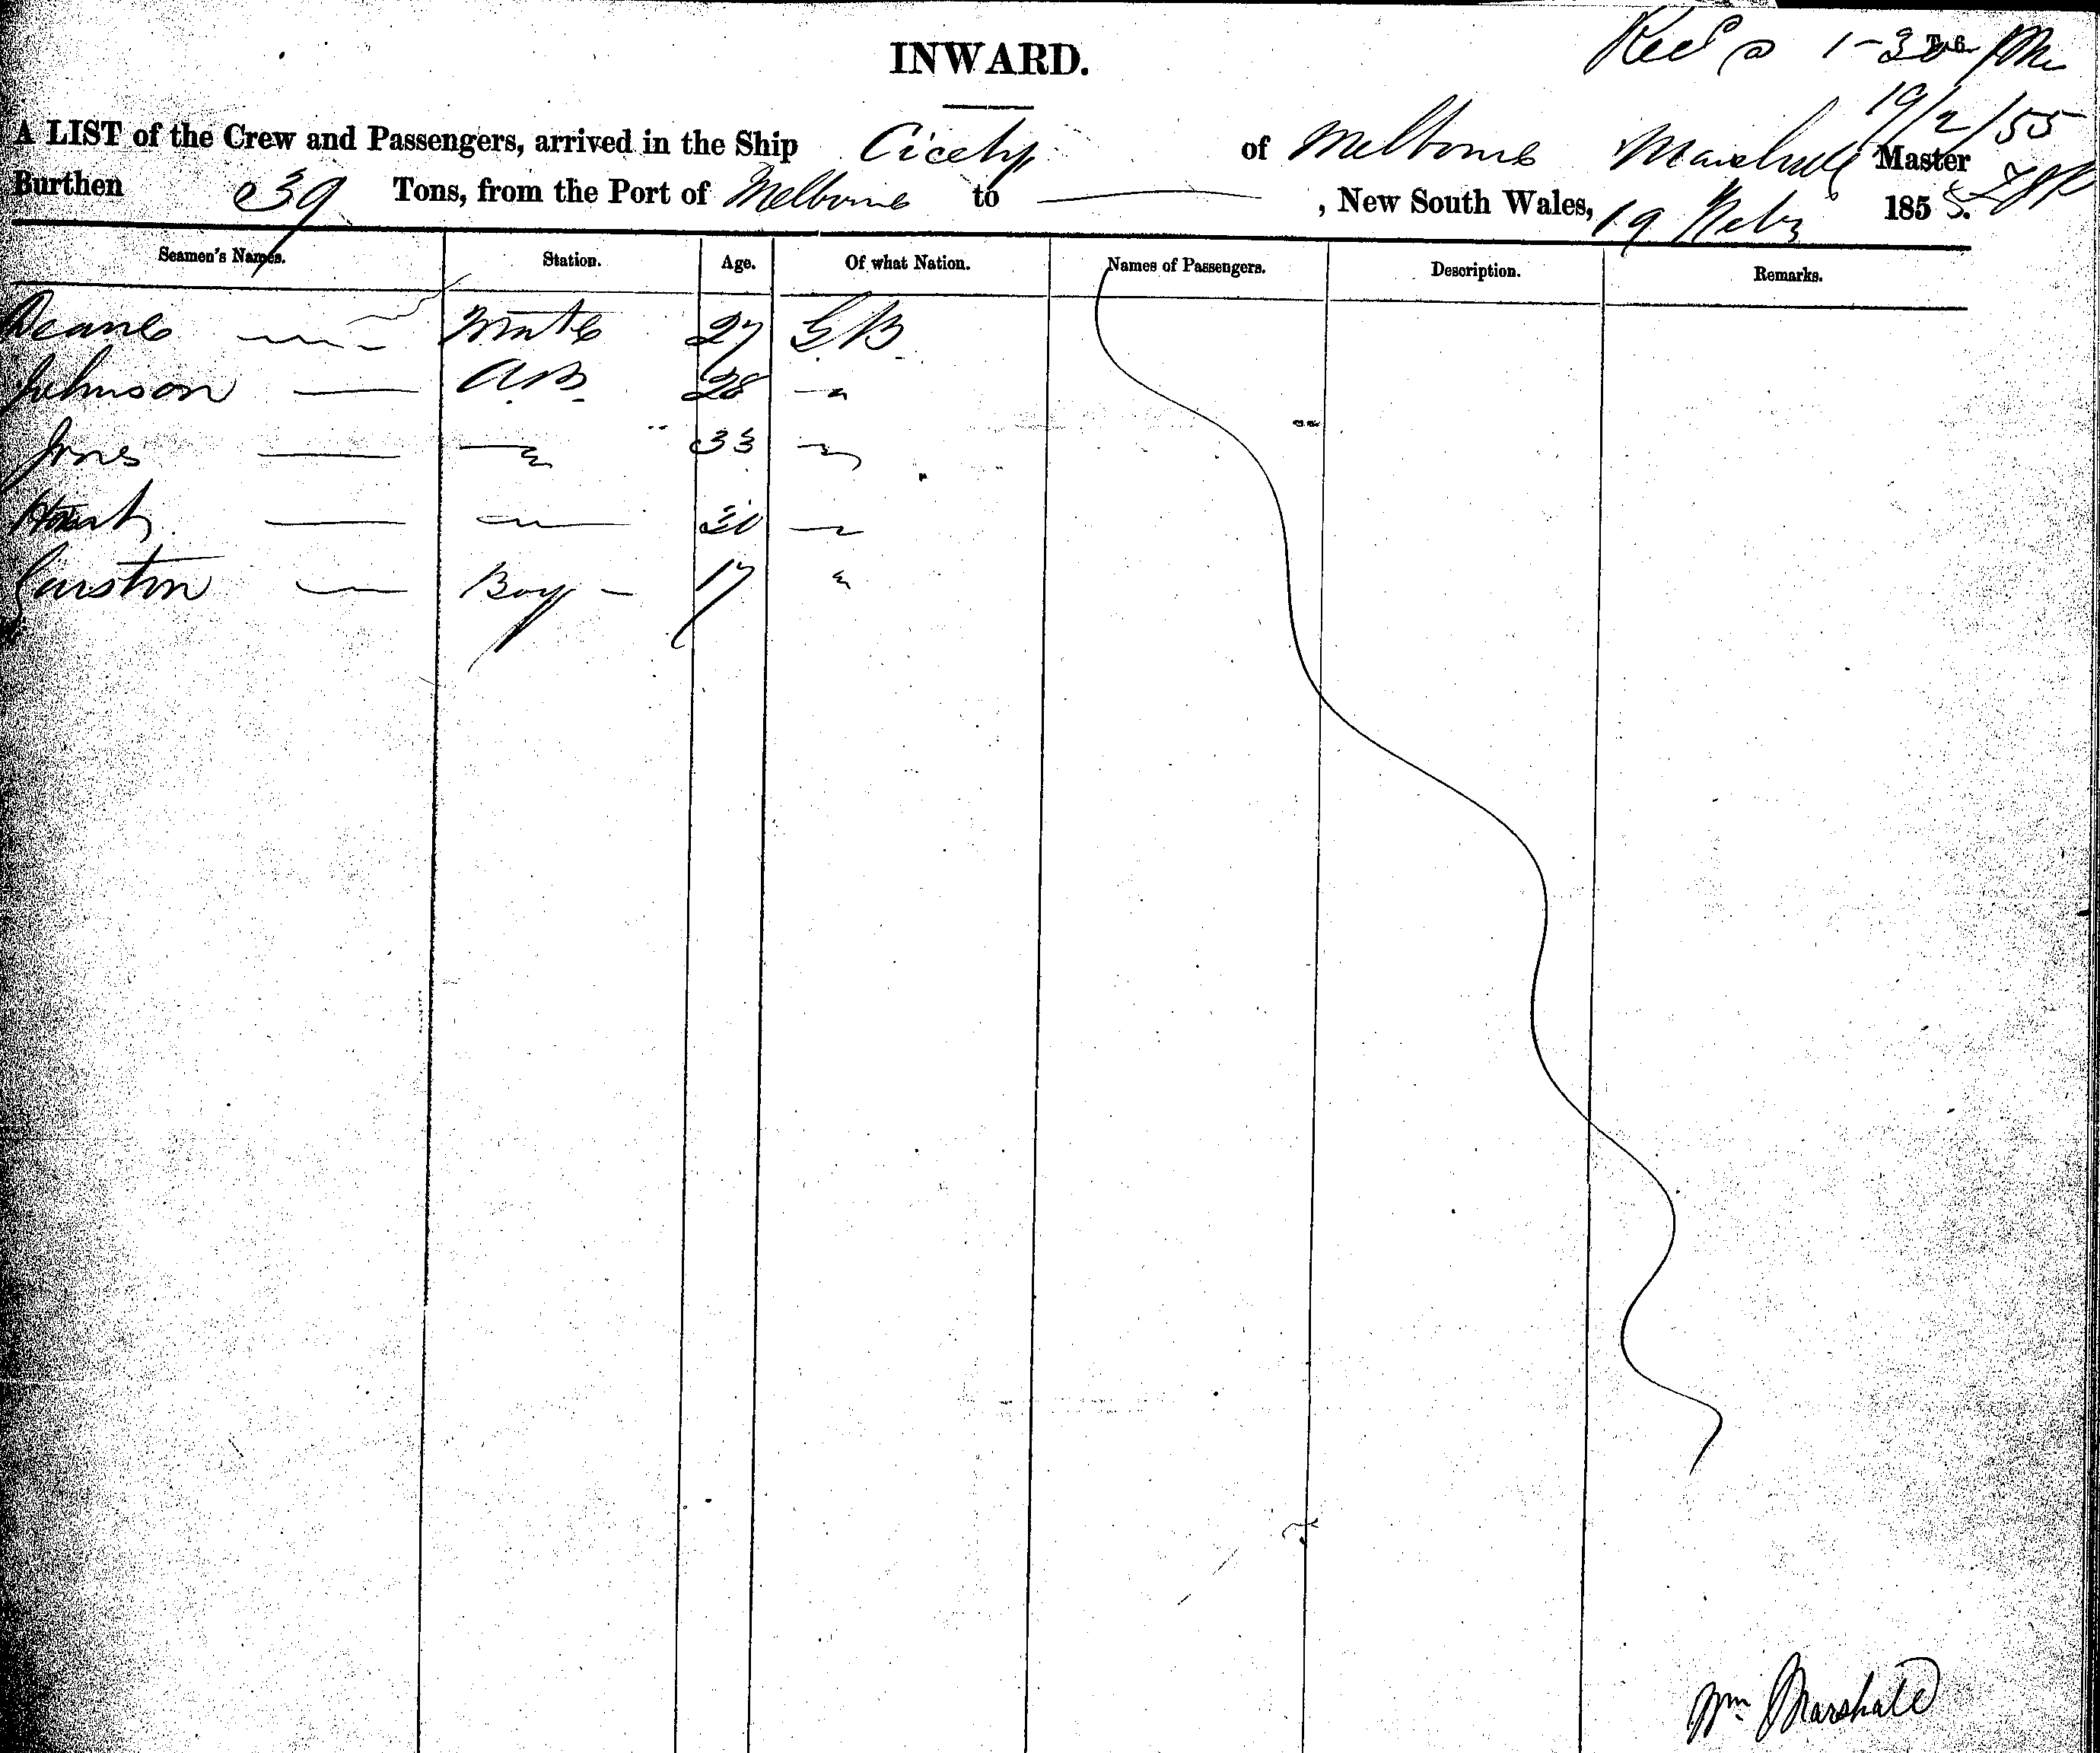 Recd @ 1-30 PM
T. 6.
INWARD.
19/2/55
A LIST of the Crew and Passengers, arrived in the Ship Cicely of Melbourne Marshall Master
Burthen 39 Tons, from the Port of Melbourne to ——— , New South Wales, 19 Feby 1855.
Seamen's Names. Station. Age. Of what Nation. Names of Passengers. Description. Remarks.
Deane — Mate 27 G B
Johnson — A.B. 28 — "
Jones — — " 33 — "
— — 30 —
Boy — 17 "
Wm Marshall